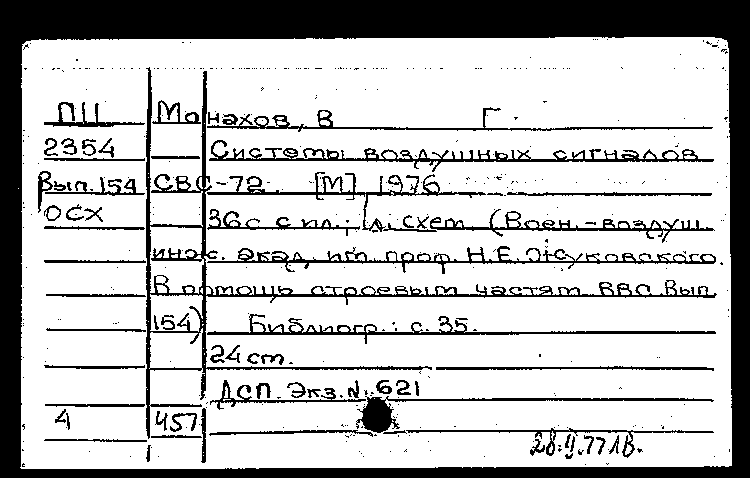 ПЦ Монахов, В Г.
2354 Системы воздушных сигналов
Вып. 154 СВС-72. [М] 1976
ОСХ 36с с ил.; 1 л. схем (Воен.-воздуш.
инж. акад. им. проф. Н.Е. Жуковского.
В помощь строевым частям ВВС. Вып.
154) Библиогр.: с. 35.
24 cm.
ДСП. Экз. N. 621
4 457
28.9.77 ЛВ.